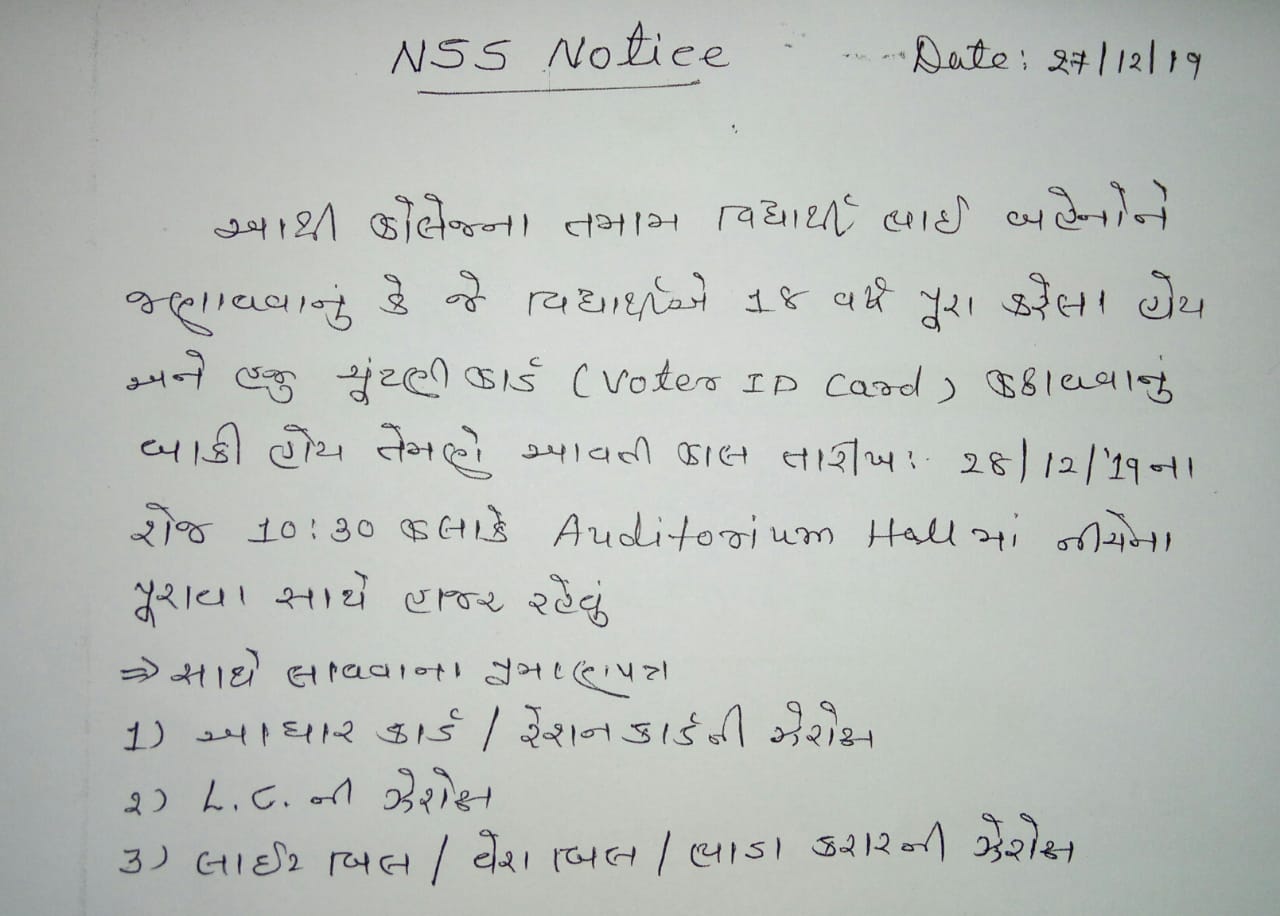 NSS Notice Date: 27/12/19
આથી કોલેજના તમામ વિદ્યાર્થી ભાઈ બહેનોને
જણાવવાનું કે જે વિદ્યાર્થીએ 18 વર્ષ પૂરા કરેલા હોય
અને હજુ ચૂંટણી કાર્ડ (Voter ID Card) કઢાવવાનું
બાકી હોય તેમણે આવતી કાલ તારીખ: 28/12/'19ના
રોજ 10:30 કલાકે Auditorium Hall માં નીચેના
પૂરાવા સાથે હાજર રહેવું
⇒ સાથે લાવવાના પ્રમાણપત્ર
1) આધાર કાર્ડ / રેશનકાર્ડની ઝેરોક્ષ
2) L.C. ની ઝેરોક્ષ
3) લાઈટ બિલ / વેરા બિલ / ભાડા કરારની ઝેરોક્ષ